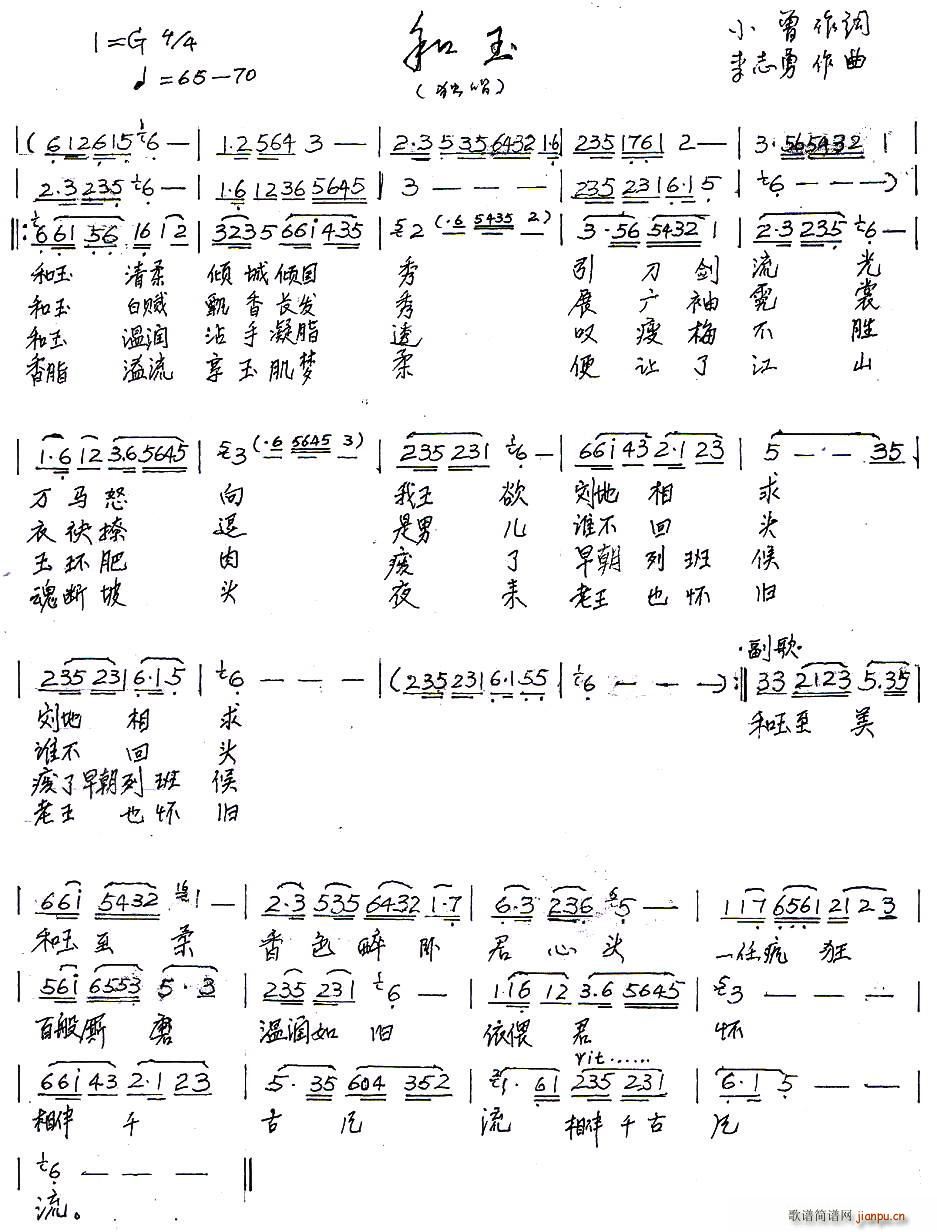 1=G 4/4
♩=65—70
和玉
(独唱)
小曾作词
李志勇作曲
|( 6 1 2 6 1 5 6 — | 1·2 5 6 4 3 — | 2·3 5 3 5 6 4 3 2 1·6 | 2 3 5 1 7 6 1 2 — | 3·5 6 5 4 3 2 1 |
| 2·3 2 3 5 6 — | 1·6 1 2 3 6 5 6 4 5 | 3 — — — | 2 3 5 2 3 1 6·1 5 | 6 — — — ) |
‖: 6 6 1 5 6 1 6 1 2 | 3 2 3 5 6 6 i 4 3 5 | 2 (·6 5 4 3 5 2) | 3·5 6 5 4 3 2 1 | 2·3 2 3 5 6 — |
和玉 清柔 倾城倾国 秀 引刀剑流光
和玉 白赋 飘香长发 秀 展广袖霓裳
和玉 温润 沾手凝脂 透 叹瘦梅不胜
香脂 溢流 享玉肌梦 柔 便让了江山
| 1·6 1 2 3·6 5 6 4 5 | 3 (·6 5 6 4 5 3) | 2 3 5 2 3 1 6 — | 6 6 i 4 3 2·1 2 3 | 5 — — 3 5 |
万马怒 向 我王 欲 刻地 相 求
衣袂撩 退 是男 儿 谁不 回 头
玉环肥 肉 疲 了 早朝 列 班 候
魂断坡 头 夜 来 老王 也怀 旧
| 2 3 5 2 3 1 6·1 5 | 6 — — — | (2 3 5 2 3 1 6·1 5 5 | 6 — — —) :‖
·副歌·
3 3 2 1 2 3 5·3 5 |
和玉至 美
刻地 相 求
谁不 回 头
疲了早朝列班 候
老王 也怀 旧
| 6 6 i 5 4 3 2 1 — | 2·3 5 3 5 6 4 3 2 1·7 | 6·3 2 3 6 5 — | 1 1 7 6 5 6 1 2 1 2 3 |
和玉至 柔 香色醉卧 君心头 一任疯狂
| 5 6 i 6 5 5 3 5·3 | 2 3 5 2 3 1 6 — | 1·1 6 1 2 3·6 5 6 4 5 | 3 — — — |
百般厮 磨 温润如 旧 依偎 君 怀
rit......
| 6 6 i 4 3 2·1 2 3 | 5·3 5 6 0 4 3 5 2 | 1·6 1 2 3 5 2 3 1 | 6·1 5 — — |
相伴 千 古 流 相伴千古
| 6 — — — ‖
流。
歌谱简谱网
jianpu.cn